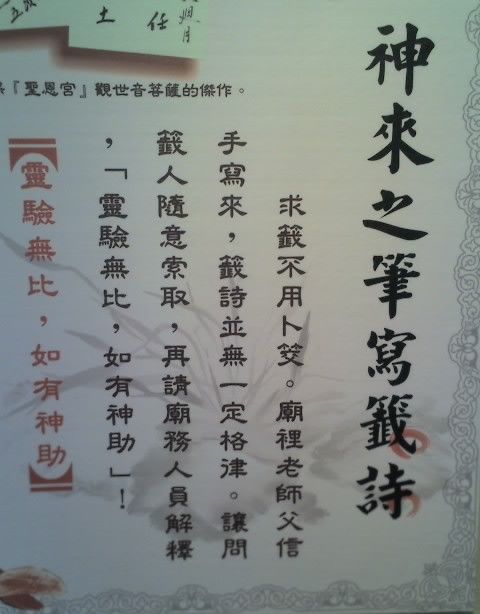 神來之筆寫籤詩
求籤不用卜筊。廟裡老師父信
手寫來，籤詩並無一定格律。讓問
籤人隨意索取，再請廟務人員解釋
，「靈驗無比，如有神助」！
【靈驗無比，如有神助】
『聖恩宮』觀世音菩薩的傑作。
任
土